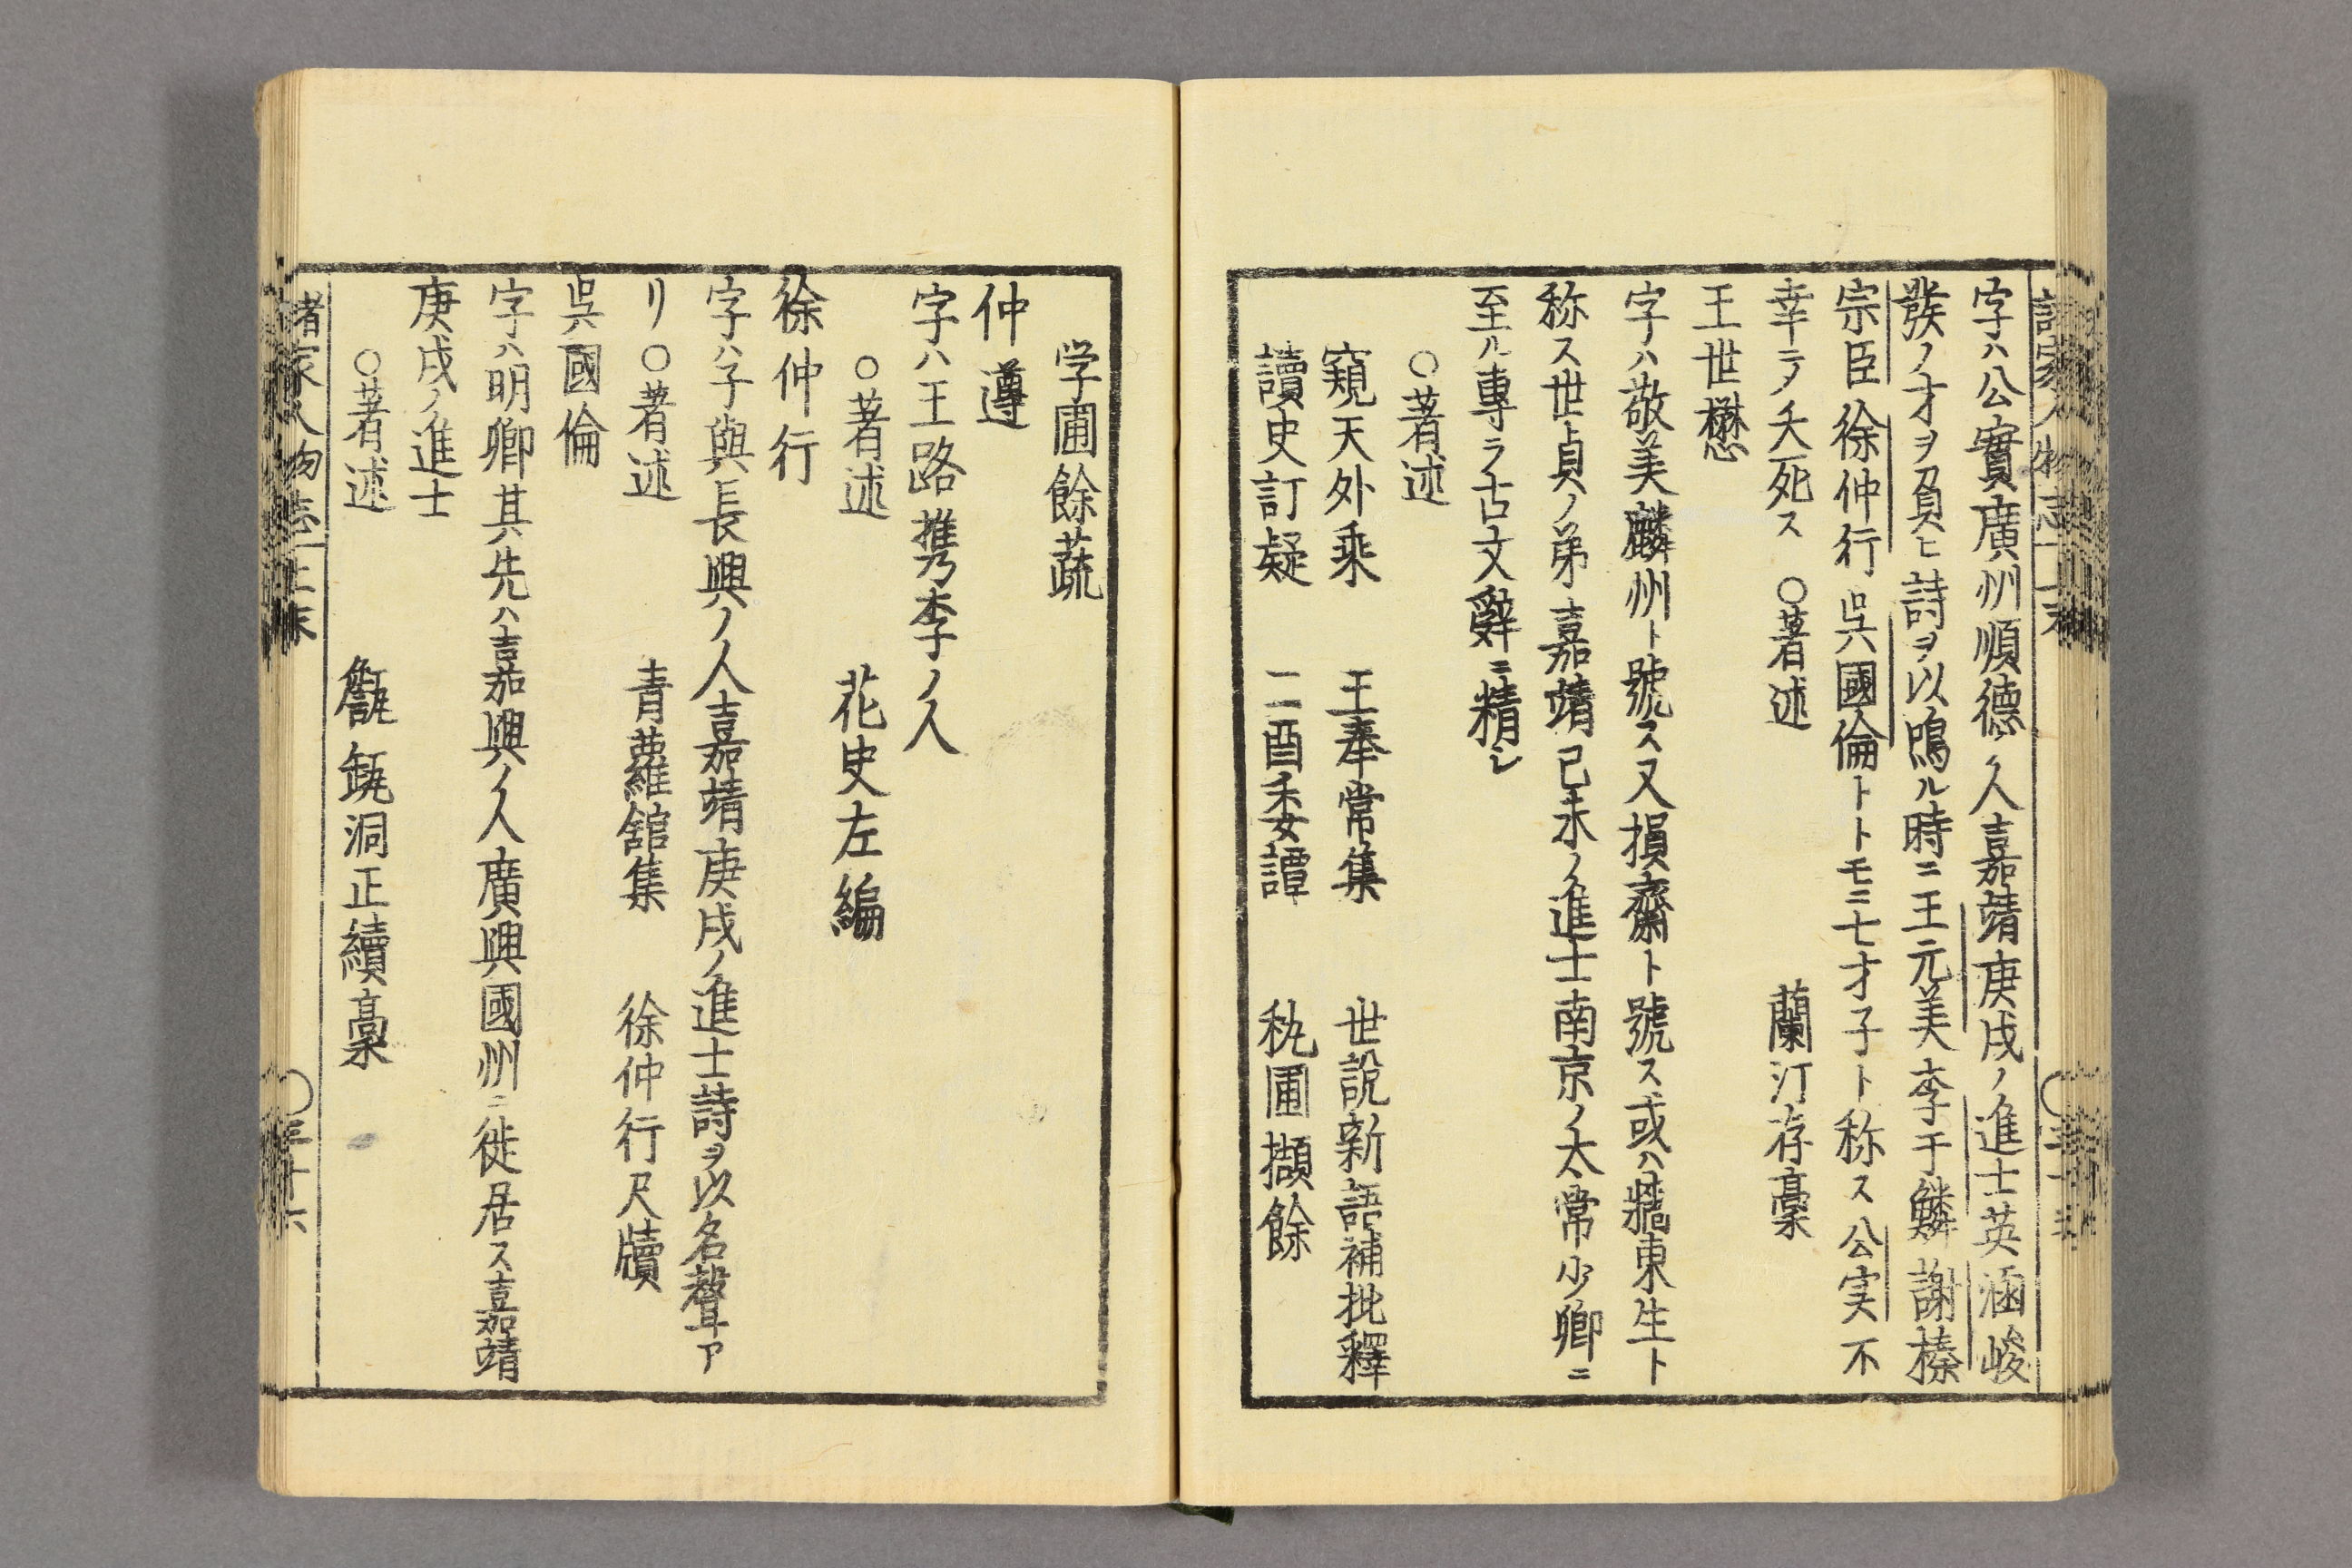 字ハ公實廣州順德ノ人嘉靖庚戌ノ進士英涵峻
發ノ才ヲ負ヒ詩ヲ以鳴ル時ニ王元美李于鱗謝榛
宗臣徐仲行呉國倫トトモニ七才子ト称ス公実不
幸ニ〆夭死ス　○著述　蘭汀存稾
王世懋
字ハ敬美麟州ト號ス又損齋ト號ス或ハ牆東生ト
称ス世貞ノ弟嘉靖己未ノ進士南京ノ太常少卿ニ
至ル專ラ古文辭ニ精シ
○著述
窺天外乘　王奉常集　世說新語補批釋
讀史訂疑　二酉委譚　秇圃擷餘
学圃餘蔬
仲遵
字ハ王路携李ノ人
○著述　花史左編
徐仲行
字ハ子與長興ノ人嘉靖庚戌ノ進士詩ヲ以名聲ア
リ○著述　青蘿舘集　徐仲行尺牘
呉國倫
字ハ明卿其先ハ嘉興ノ人廣興國州ニ徙居ス嘉靖
庚戌ノ進士
○著述　甔甀洞正續稾
諸家人物志 上末　○三十六